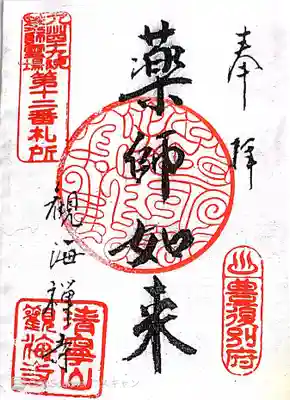 奉拝
薬師如来
観海禅寺
九州四十九院
薬師霊場
第十二番札所
♨豊後別府
清寧山
観海寺